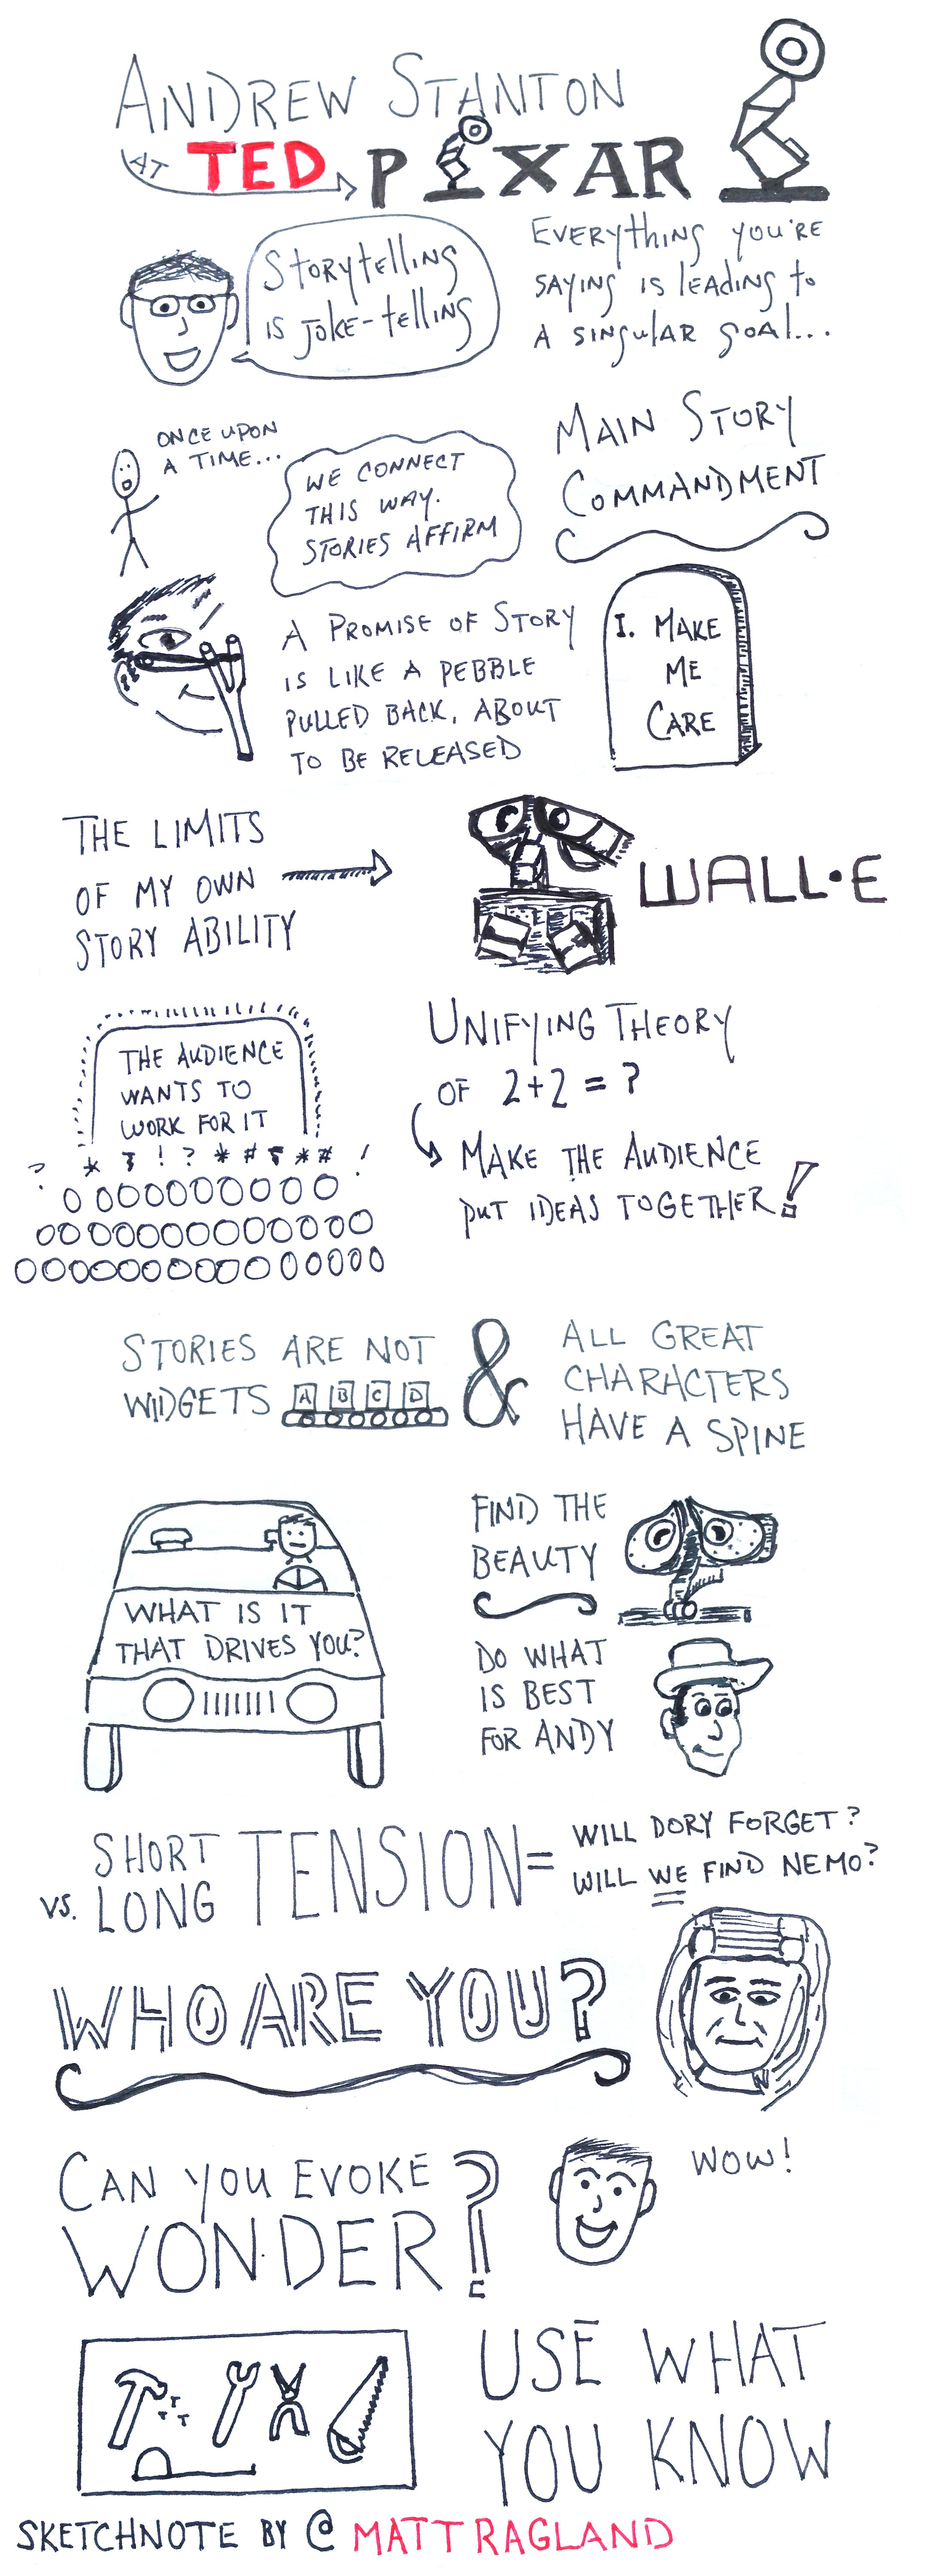 ANDREW STANTON
AT TED PIXAR
STORYTELLING
IS JOKE-TELLING
EVERYTHING YOU'RE
SAYING IS LEADING TO
A SINGULAR GOAL...
ONCE UPON
A TIME...
WE CONNECT
THIS WAY.
STORIES AFFIRM
MAIN STORY
COMMANDMENT
A PROMISE OF STORY
IS LIKE A PEBBLE
PULLED BACK, ABOUT
TO BE RELEASED
I. MAKE
ME
CARE
THE LIMITS
OF MY OWN
STORY ABILITY
WALL•E
THE AUDIENCE
WANTS TO
WORK FOR IT
UNIFYING THEORY
OF 2+2=?
MAKE THE AUDIENCE
PUT IDEAS TOGETHER!
STORIES ARE NOT
WIDGETS A B C D
&
ALL GREAT
CHARACTERS
HAVE A SPINE
WHAT IS IT
THAT DRIVES YOU?
FIND THE
BEAUTY
DO WHAT
IS BEST
FOR ANDY
SHORT
VS. LONG
TENSION =
WILL DORY FORGET?
WILL WE FIND NEMO?
WHO ARE YOU?
CAN YOU EVOKE
WONDER?
WOW!
USE WHAT
YOU KNOW
SKETCHNOTE BY @MATTRAGLAND